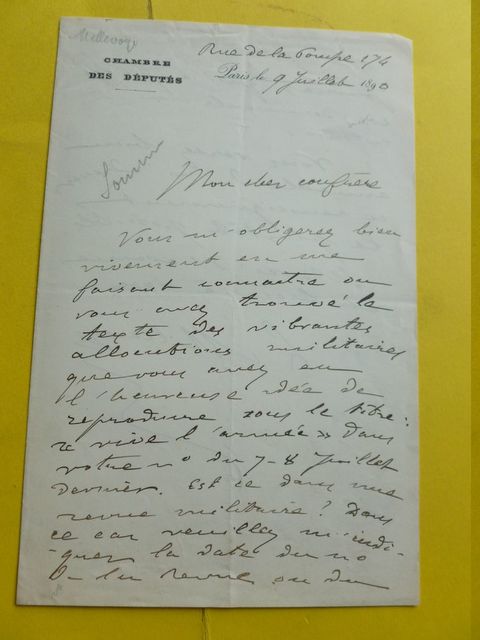 Millevoye
CHAMBRE
DES DÉPUTÉS
Rue de la Pompe 174
Paris le 9 Juillet 1890
Somme
Mon cher confrère
Vous m'obligerez bien
vivement en me
faisant connaître ou
vous avez trouvé le
texte des vibrantes
allocutions militaires
que vous avez eu
l'heureuse idée de
reproduire sous le titre :
« vive l'armée » dans
votre no du 7-8 Juillet
dernier. Est ce dans une
revue militaire ? Dans
ce cas veuillez m'indi-
quer la date du no
de la revue ou du